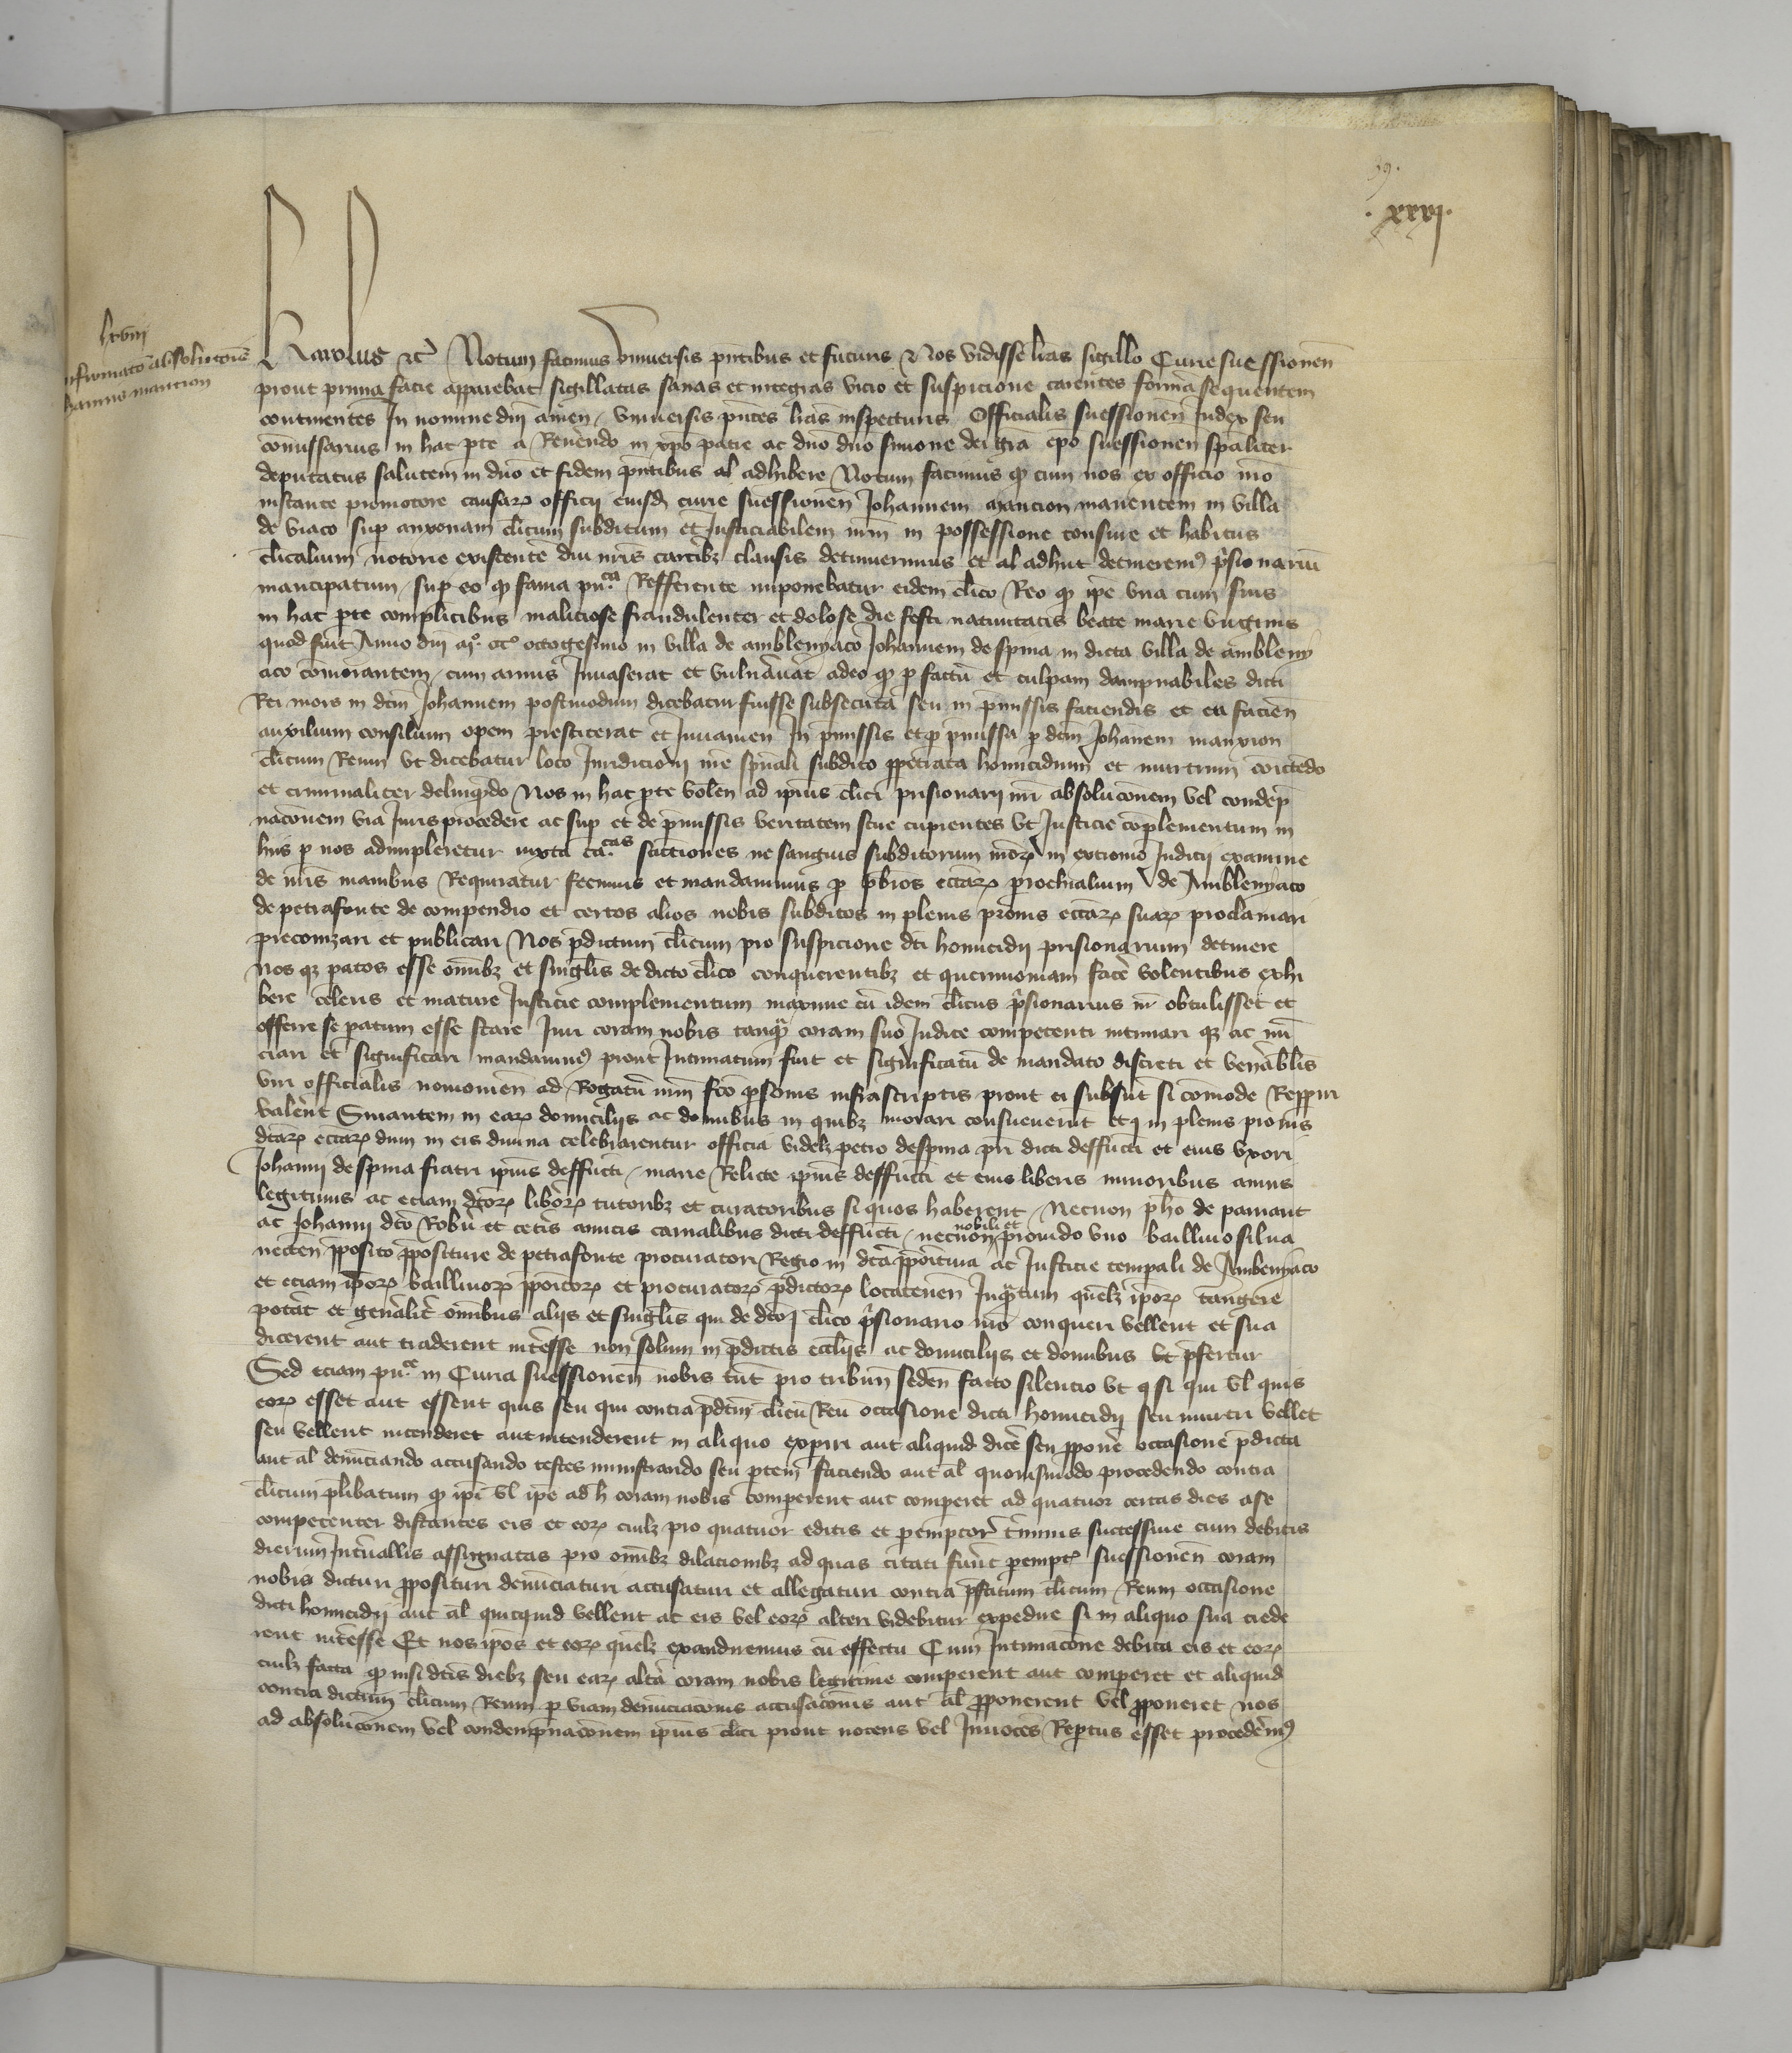 39.
.xxxvj.
lxviij
nfirmato absolucois
hannis mancion
Karolus &c̃ Notum facimus Vniuersis pñtibus et futuris Nos vidisse lr̃as sigillo Curie suessioneñ
prout prima facie apparebat sigillatas sanas et integras vicio et suspicione carentes formã sequentem
continentes In nomine dñi amen / Vniuersis pñtes lr̃as inspecturis Officialis suessioneñ Iudex seu
cõmissarius in hac pte a Reuerẽdo in xp̃o patre ac dño dño simone dei gr̃a ep̃o suessioneñ sp̃aliter
deputatus salutem in dño et fidem pñtibus al adhibere Notum facimus qͥ cum nos ex officio nr̃o
instante promotore causarꝫ officij eiusd curie suessioneñ Johannem mancion manentem in villa
de viaco sup axonam cl̃icum subditum et Justiciabilem nr̃m in possessione tonsure et habitus
cl̃icalium notorie existente diu nr̃is carcibꝫ clausis detinuerimus et al adhuc detineremꝰ pͥsionariũ
mancipatum / sup eo qͥ fama puᶜᵃ Refferente imponebatur eidem cl̃ico Reo qͥ ip̃e vna cum suis
in hac pte complicibus maliciose fraudulenter et dolose die festi natiuitatis beate marie virginis
quod fuit Anno dñi mͦ. ccᶜ octogesimo in villa de amblenyaco Johannem de spina in dicta villa de ambleny
aco cõmorantem / cum armis Inuaserat et vulñauat adeo qͥ p factũ et culpam dampnabiles dicti
Rei mors in dc̃m Johannem postmodum dicebatur fuisse subsecuta seu in p̃missis faciendis et ea facieñ
auxilium consilium opem prestiterat et Juuamen In p̃missis et p p̃missa p dc̃m Johañem manxion
cl̃icum Reum vt dicebatur loco Juridicioñi nr̃e sp̃uali subdito ppetrata homicidium et murtrum cõictẽdo
et criminaliter delinqͥdo Nos in hac pte voleñ ad ip̃ius cl̃ici prisionarij nr̃i absoluc̃onem vel condep̃
nac̃onem via Juris procedere ac sup et de p̃missis veritatem scire cupientes vt Justicie cõplementum in
hiis p nos adimpleretur iuxta caᶜᵃˢ sanctiones ne sanguis subditorum nr̃orꝫ in extremo Judicij examine
de nr̃is manibus Requiratur fecimus et mandauimus p p̃bros ecc̃arꝫ parochialium de Amblenyaco
de petrafonte de compendio et certos alios nobis subditos in plenis pronis ecc̃arꝫ suarꝫ proclamari
preconizari et publicari Nos p̃dictum cl̃icum pro suspicione dc̃i homicidij prisionarium detinere
Nos qꝫ patos esse om̃ibꝫ et singl̃is de dicto cl̃ico conquerentibꝫ et querimoniam fac̃e volentibus exhi
bere celeris et mature Justicie complementum maxime cũ idem cl̃icus pͥsionarius nr̃ obtulisset et
offerre se patum esse stare Juri coram nobis tanqͣ coram suo Judice competenti intimari qꝫ ac nũ
ciari et significari mandauimꝰ prout Intimatum fuit et significatũ de mandato discreti et veñabl̃is
viri officialis nouiomeñ ad Rogatũ nr̃m fc̃o psonis infrascriptis prout ei subsũt si cõmode Reppiri
valẽnt Sinautem in earꝫ domiciliis ac domibus in quibꝫ morari consueuerũt et in plenis pronis
dc̃arꝫ ecc̃arꝫ dum in eis diuina celebrarentur officia videlꝫ petro despina pr̃i dicti deffuncti et eius vxori
Johanni despina fratri ip̃ius deffũcti / marie Relicte ip̃ius deffũcti et eius liberis minoribus annis
legitimis ac eciam dc̃orꝫ libẽrorꝫ tutoribꝫ et curatoribus si quos haberent / Necnon ph̃o de pamant
ac Johanni dc̃o Robiñ et cet̃is amicis carnalibus dicti deffuncti / necnon nobili et prouido viro bailliuo silua
necteñ pposito ppositure de petrafonte procuratori Regio in dc̃a ppõitura ac Justicie tempali de Ambenyaco
et eciam ip̃orꝫ bailliuorꝫ ppõitorꝫ et procuratorꝫ p̃dictorꝫ locateneñ Inqͣtum quẽlꝫ ip̃orꝫ tangere
potẽat et geñalit̃ om̃ibus alijs et singl̃is qui de dc̃o cl̃ico pͥsionario nr̃o conqueri vellent et sua
dicerent aut traderent int̃esse non solum in p̃dictis eccl̃iis ac domiciliis et domibus vt p̃fertur
Sed eciam puᶜᵉ in Curia suessioneñ nobis tũc pro tribuñ sedeñ facto silencio vt qͥ si qui vl̃ quis
eorꝫ esset aut essent quis seu qui contra p̃dc̃m cl̃icũ Reũ occasione dicti homicidij seu murtri vellet
seu vellent intenderet aut intenderent in aliquo expiri aut aliquid dic̃e seu ppoñe occasione p̃dicta
aut al̃ denũciando accusando testes ministrando seu ptem faciendo aut al̃ quouismodo procedendo contra
cl̃icum p̃libatum qͥ ip̃i vl̃ ip̃e ad h̃ coram nobis comperent aut comperet ad quatuor certas dies ase
competenter distantes eis et eorꝫ cuilꝫ pro quatuor editis et pemptor t̃minis successiue cum debitis
dierum Int̃uallis assignatas pro om̃ibꝫ dilacionibꝫ ad quas citati fuer̃t pempt̃e suessioneñ coram
nobis dicturi pposituri denũciaturi accusaturi et allegaturi contra p̃fatum cl̃icum / Reum occasione
dicti homicidij aut al̃ quicquid vellent ac eis vel eorꝫ alteri videbitur expedire si in aliquo sua crede
rent int̃esse Et nos ip̃os et eorꝫ quẽlꝫ exaudiremus cũ effectu Cum Intimac̃one debita eis et eorꝫ
cuilꝫ facta qͥ nisi dc̃is diebꝫ seu earꝫ alta coram nobis legitime comperent aut comperet et aliquid
contra dictum cl̃icum / Reum p viam denũciac̃onis accusac̃onis aut al̃ pponerent vel pponeret nos
ad absoluc̃onem vel condempnac̃onem ip̃ius cl̃ici prout nocens vel Innocẽs Reptus esset procedẽmꝰ